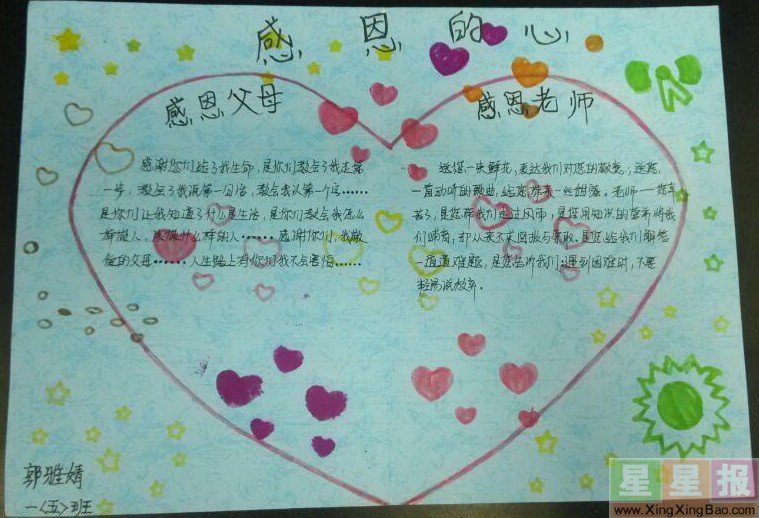 感恩的心
感恩父母
感谢您们给了我生命,是你们教会了我走第
一步,教会了我说第一句话,教会我认第一个字……
是你们让我知道了什么是生活,是你们教会我怎么
样做人,做什么样的人……感谢你们,我敬
爱的父母……人生路上有你们我不会害怕……
感恩老师
送您一束鲜花,表达我们对您的敬意;送您
一首动听的歌曲,给您带来一丝甜蜜。老师——您辛
苦了,是您带我们走过风雨,是您用知识的营养将我
们哺育,却从来不求回报与索取。是您给我们解答
一道道难题,是您告诉我们:遇到困难时,不要
轻易说放弃。
郭雅婧
一〈五〉班
星星报
www.XingXingBao.com